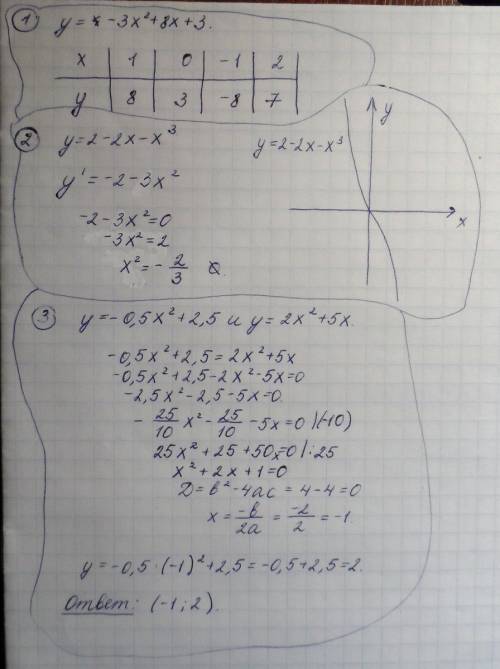 ① y = -3x²+8x+3.
x | 1 | 0 | -1 | 2
y | 8 | 3 | -8 | 7
② y=2-2x-x³
y'=-2-3x²
-2-3x²=0
-3x²=2
x²=-2/3
y=2-2x-x³
y
x
③ y=-0,5x²+2,5 и y=2x²+5x.
-0,5x²+2,5=2x²+5x
-0,5x²+2,5-2x²-5x=0
-2,5x²-2,5-5x=0
-25/10 x²-25/10-5x=0 |(-10)
25x²+25+50x=0 |:25
x²+2x+1=0
D=b²-4ac=4-4=0
x=-b/2a=-2/2=-1.
y=-0,5·(-1)²+2,5=-0,5+2,5=2.
Ответ: (-1;2).